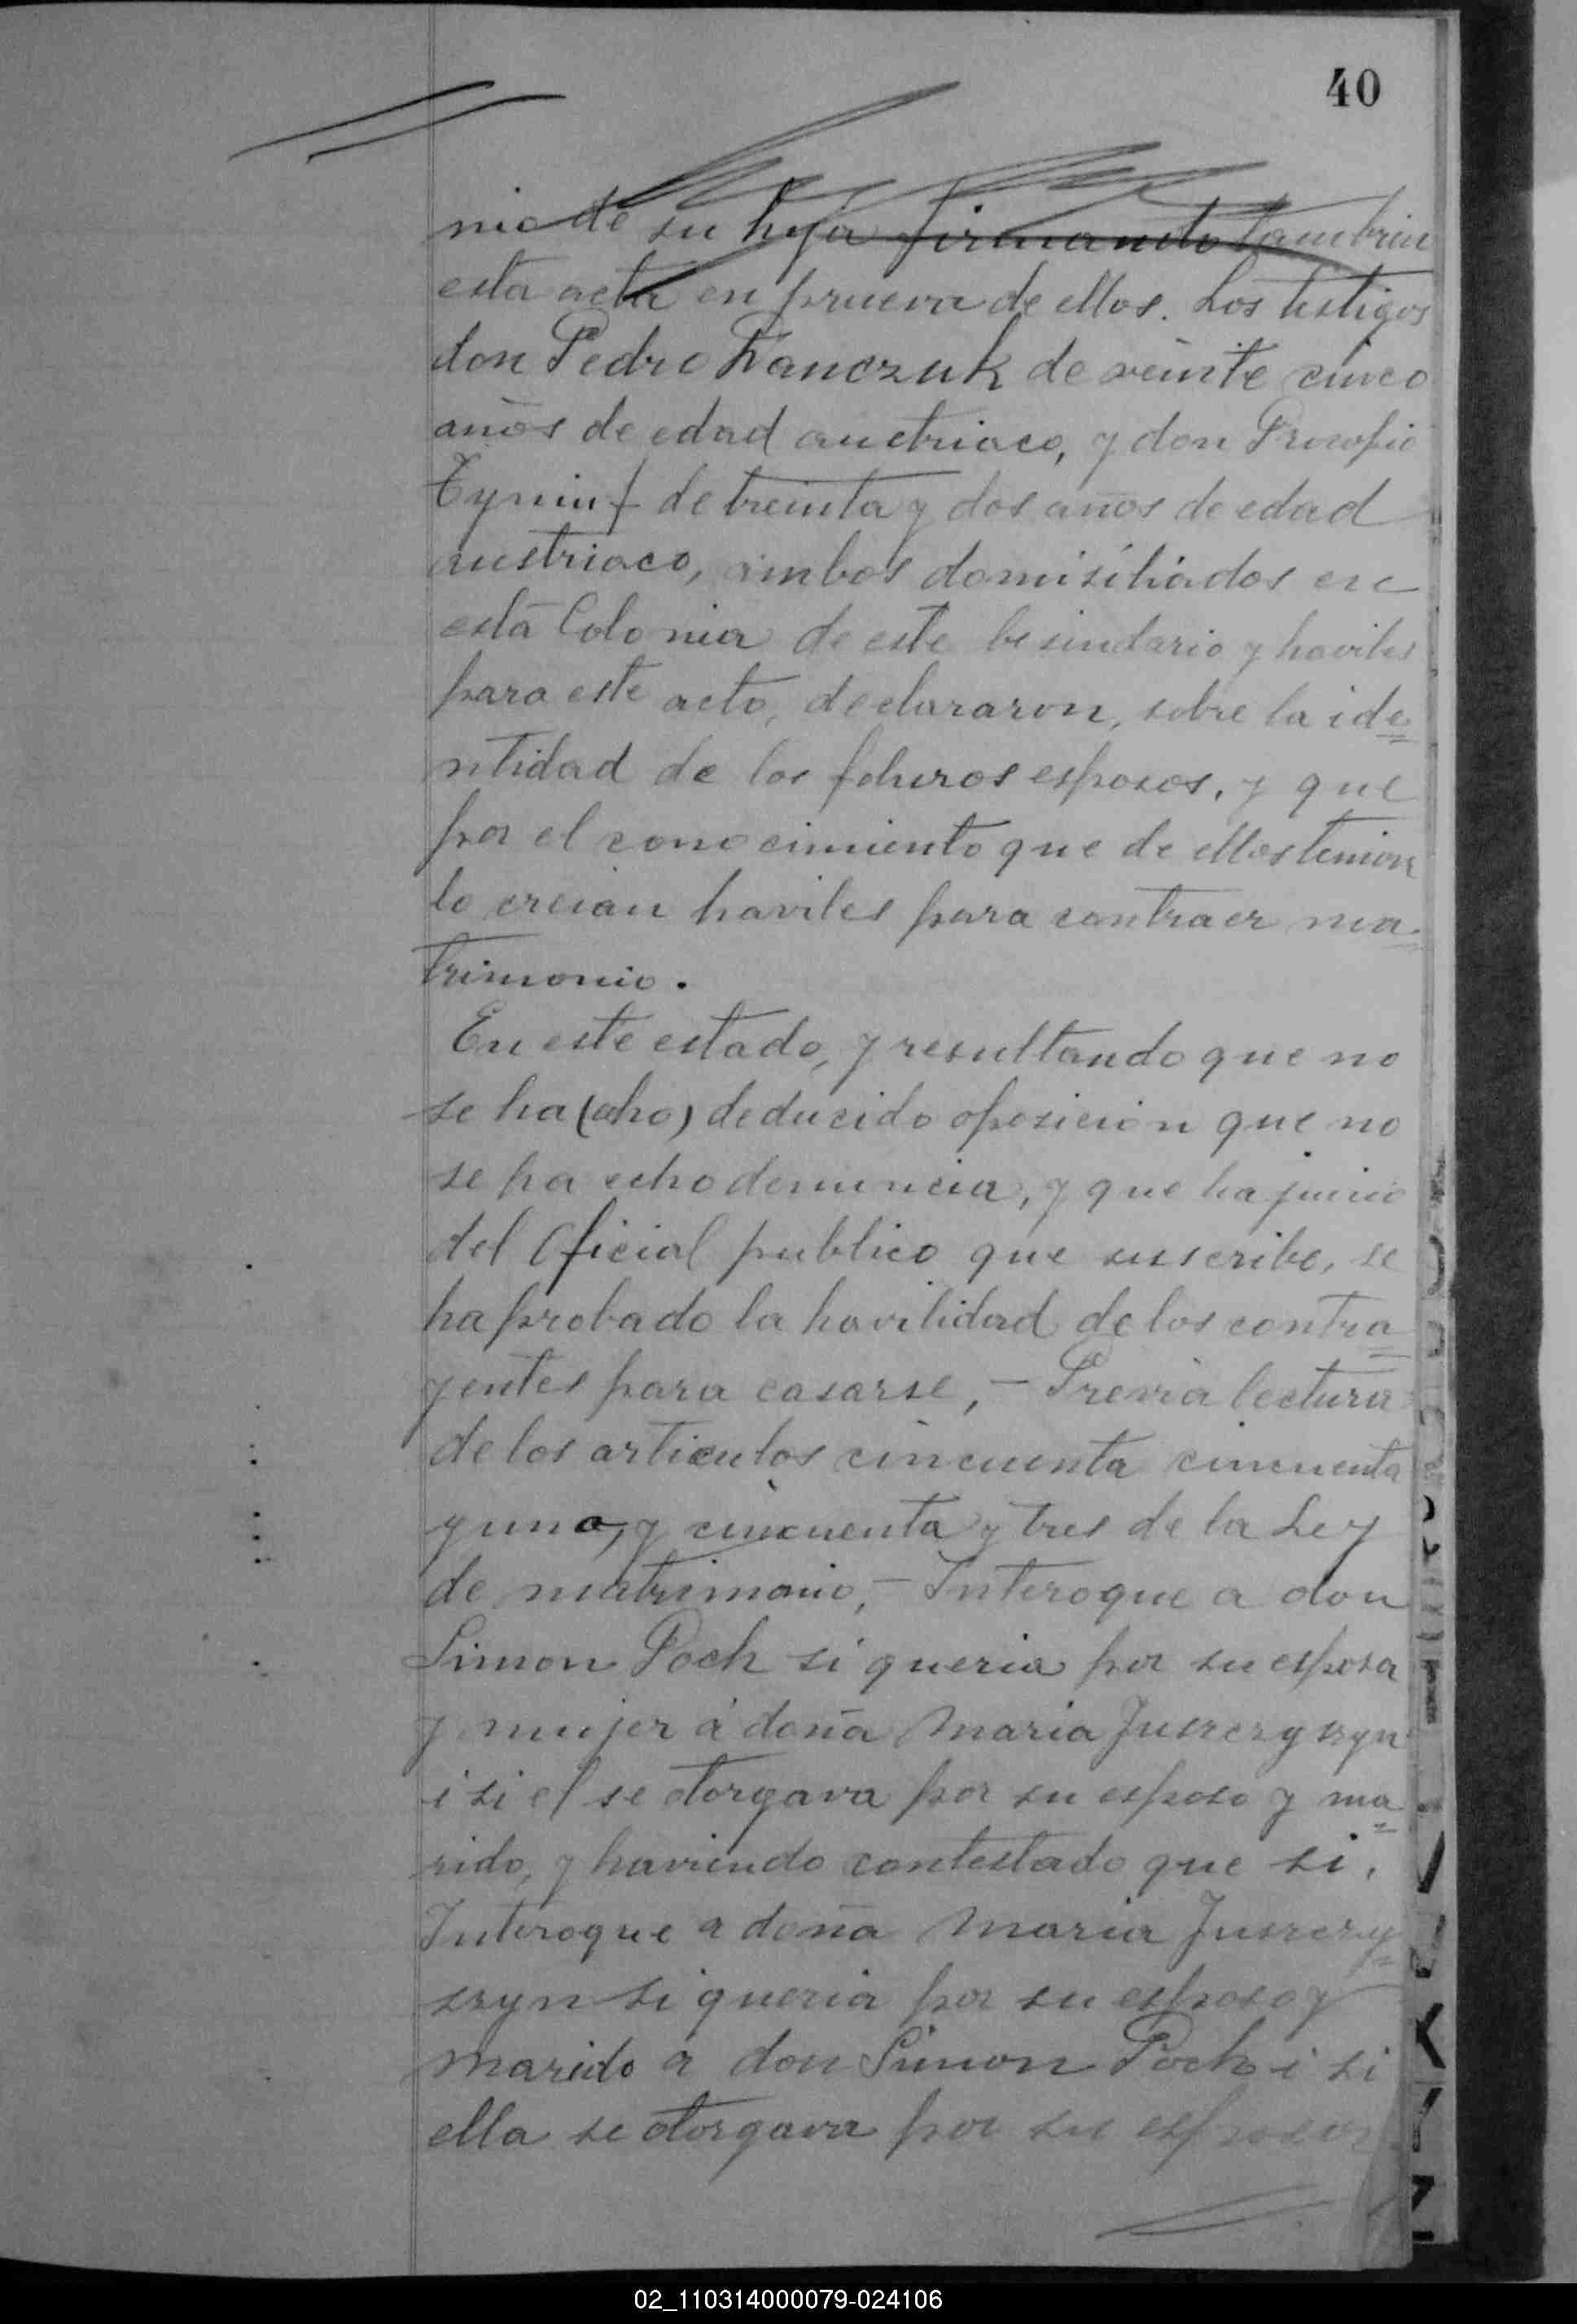 40
nio de su hija firmando tambien
esta acta en prueva de ellos. Los testigos
don Pedro Hanczuk de veinte cinco
años de edad auctriaco, y don Procopio
de treinta y dos años de edad
austriaco, ambos domisiliados en
esta Colonia de este besindario y haviles
para este acto, declararon, sobre la ide
ntidad de los foturos esposos, y que
por el conocimiento que de ellos tenian
lo creian haviles para contraer ma
trimonio.
En este estado, y resultando que no
se ha (aho) deducido oposicion que no
se ha echo denuncia, y que ha juicio
del Oficial publico que suscribe, se
ha probado la havilidad de los contra
yentes para casarse, - Previa lectura
de los articulos cincuenta cincuenta
y uno, y cincuenta y tres de la Ley
de matrimonio, - Interoque a don
Simon Poch si queria por su esposa
y mujer á doña Maria Juszczyszyn
i si el se otorgava por su esposo y ma
rido, y haviendo contestado que si,
Interoque a doña Maria Juszczy
szyn si queria por su esposo y
marido a don Simon Poch i si
ella se otorgava por su esposa
02_110314000079-024106